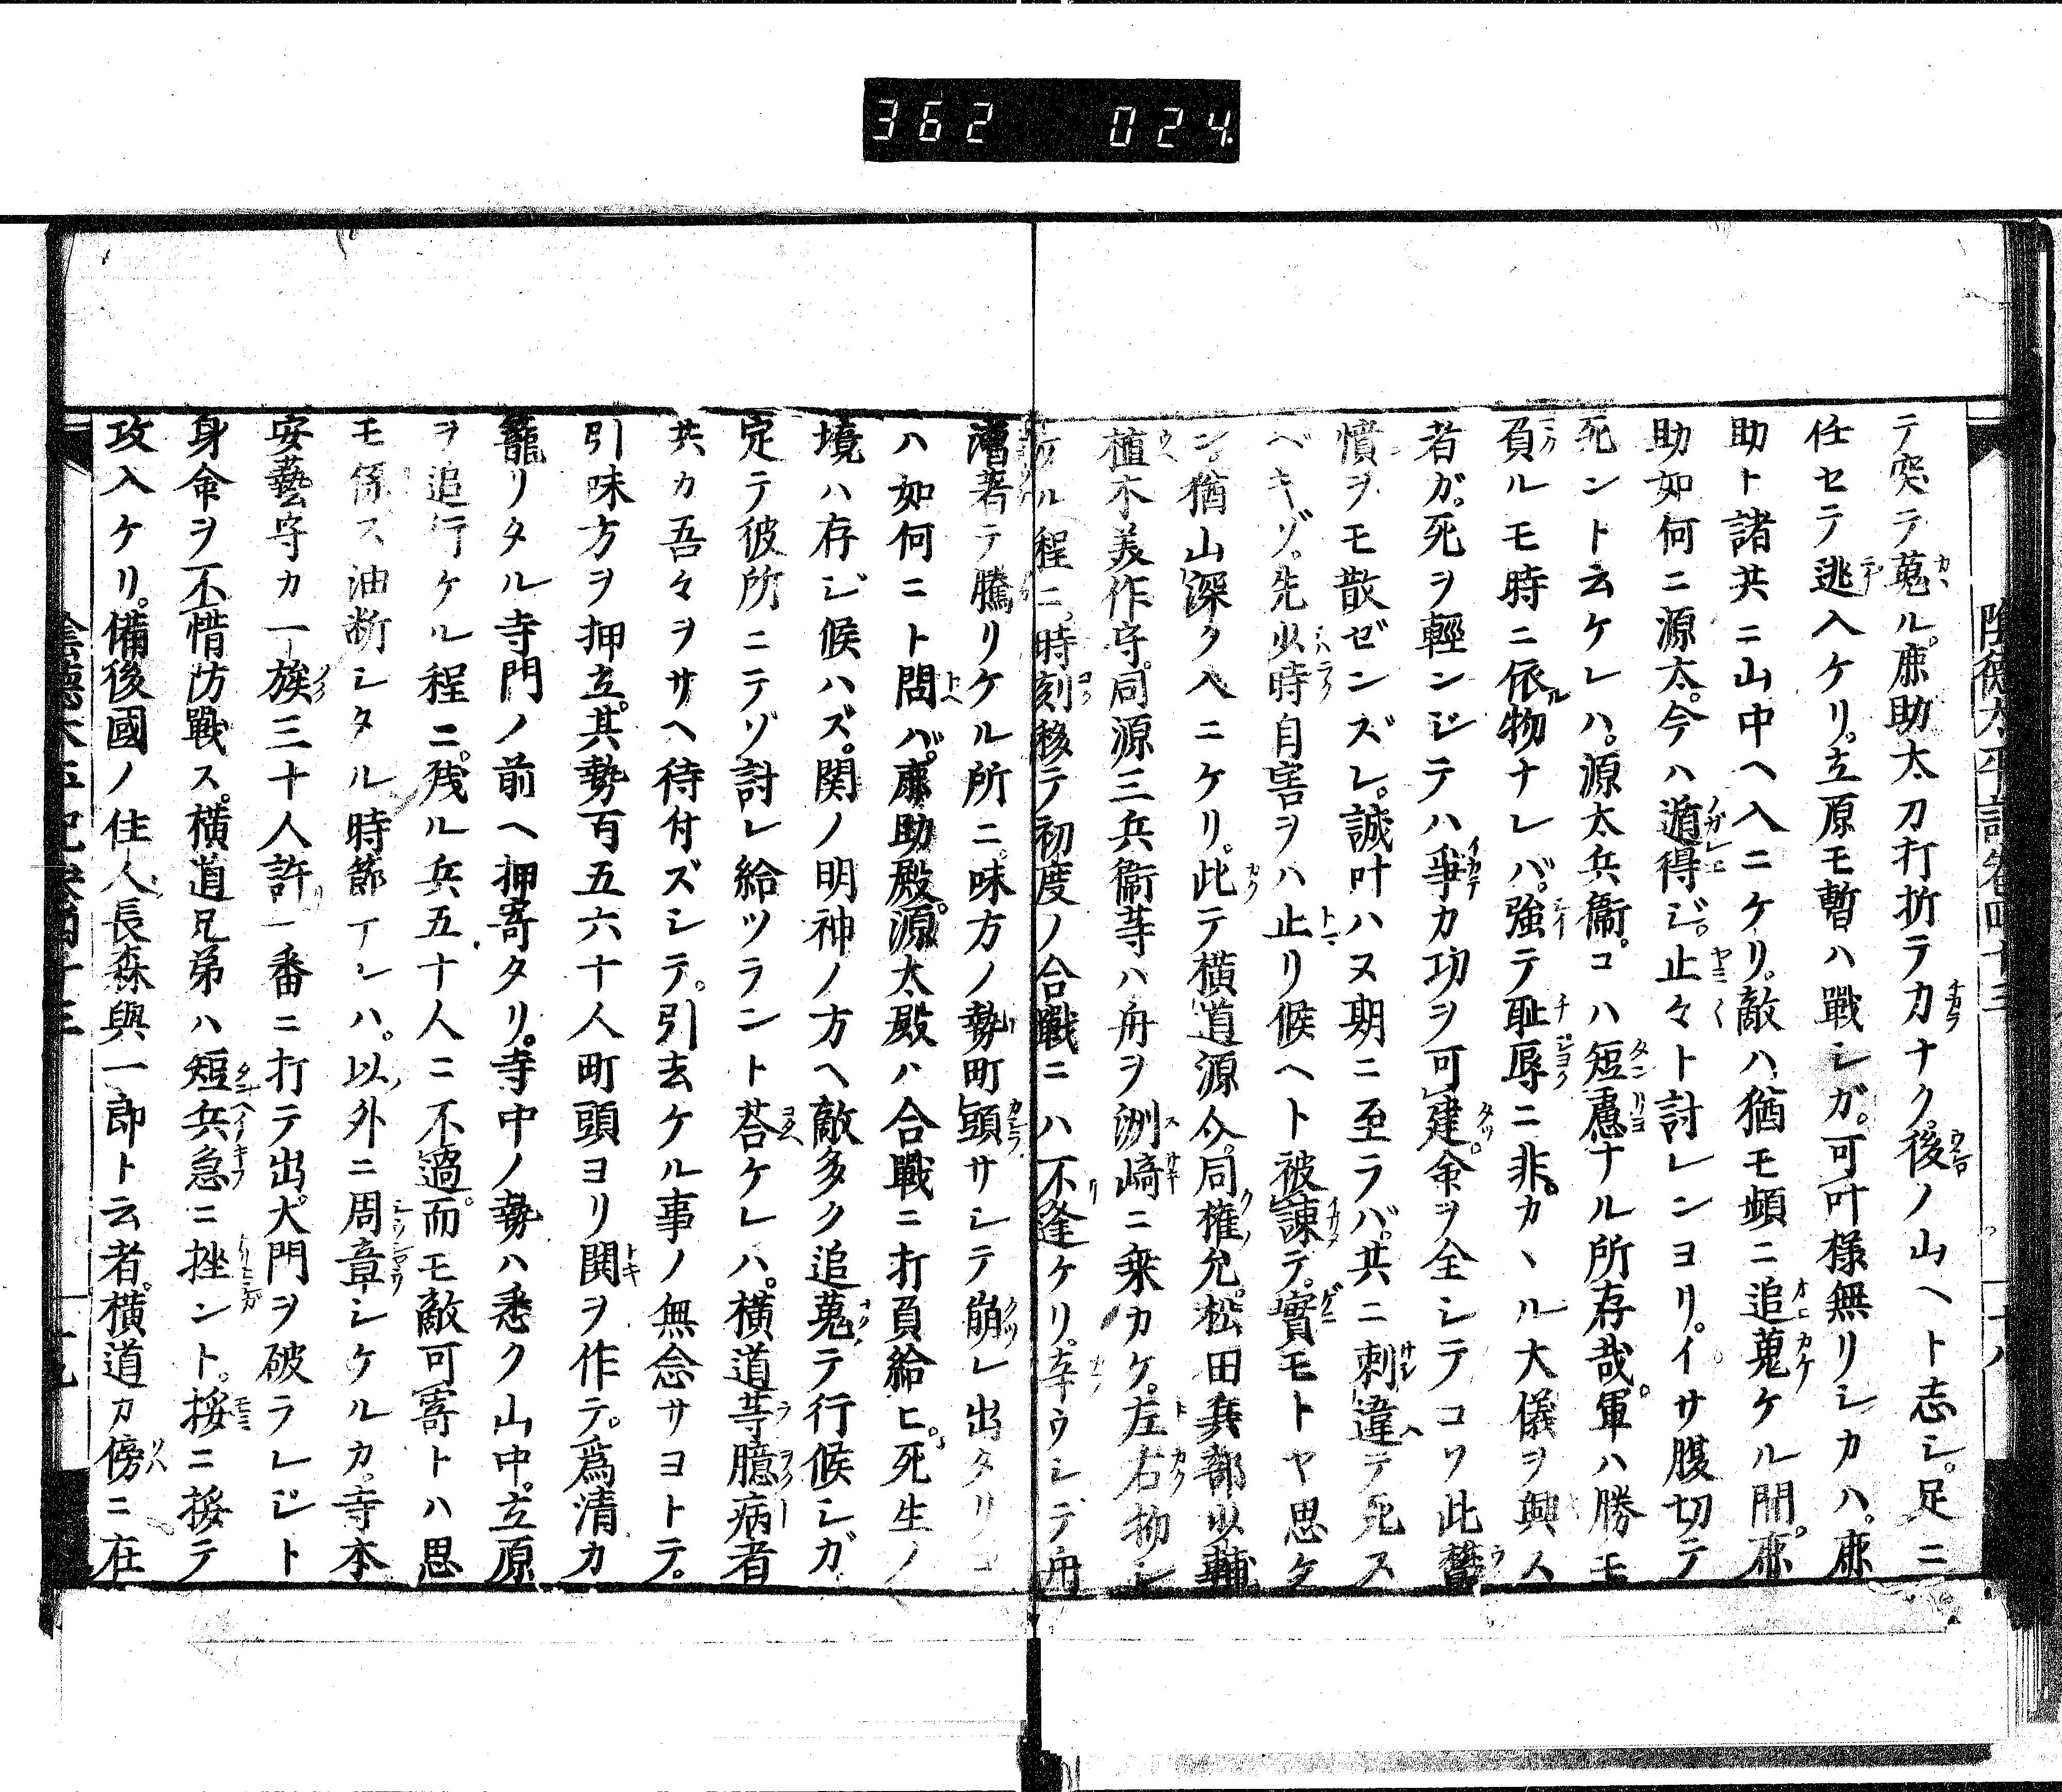 362 024
陰德太平記卷四十三 十八
テ突テ蒐ル。鹿助太刀打折テ力ナク。後ノ山ヘト志シ。足ニ
任セテ逃入ケリ。立原モ暫ハ戰シガ。可叶様無リシカハ。鹿
助ト諸共ニ山中ヘ入ニケリ。敵ハ猶モ頻ニ追蒐ケル間。鹿
助如何ニ源太。今ハ遁得ジ。止々ト討レンヨリ。イサ腹切テ
死ント云ケレハ。源太兵衞。コハ短慮ナル所存哉。軍ハ勝モ
負ルモ時ニ依物ナレバ。強テ耻辱ニ非。カヽル大儀ヲ興ス
者ガ。死ヲ輕ンジテハ爭カ功ヲ可建。命ヲ全シテコソ此鬱
憤ヲモ散ゼンズレ。誠叶ハヌ期ニ至ラバ。共ニ刺違テ死ス
ベキゾ。先少時自害ヲハ止リ候ヘト被諫テ。實モトヤ思ケ
ン。猶山深ク入ニケリ。此テ横道源介。同權允。松田兵部少輔。
植木美作守。同源三兵衞等ハ舟ヲ洲崎ニ乘カケ。左右拗シ
ケル程ニ。時刻移テ初度ノ合戰ニハ不逢ケリ。辛ウシテ舟
漕著テ騰リケル所ニ。味方ノ勢町頭サシテ崩レ出タリ
ハ如何ニト問バ。鹿助殿。源太殿ハ合戰ニ打負給ヒ。死生ノ
境ハ存ジ候ハズ。関ノ明神ノ方ヘ敵多ク追蒐テ行候シガ。
定テ彼所ニテゾ討レ給ツラント荅ケレハ。横道等臆病者
共カ吾々ヲサヘ待付ズシテ。引去ケル事ノ無念サヨトテ。
引味方ヲ押立。其勢百五六十人町頭ヨリ鬨ヲ作テ。爲清カ
籠リタル寺門ノ前ヘ押寄タリ。寺中ノ勢ハ悉ク山中。立原
ヲ追行ケル程ニ。殘ル兵五十人ニ不過。而モ敵可寄トハ思
モ係ス油断シタル時節ナレハ。以外ニ周章シケルカ。寺本
安藝守カ一族三十人許一番ニ打テ出。大門ヲ破ラレジト
身命ヲ不惜防戰ス。横道兄弟ハ短兵急ニ挫ント。挼ニ挼テ
攻入ケリ。備後國ノ住人長森與一郎ト云者。横道カ傍ニ在
陰德太平記卷四十三 十九